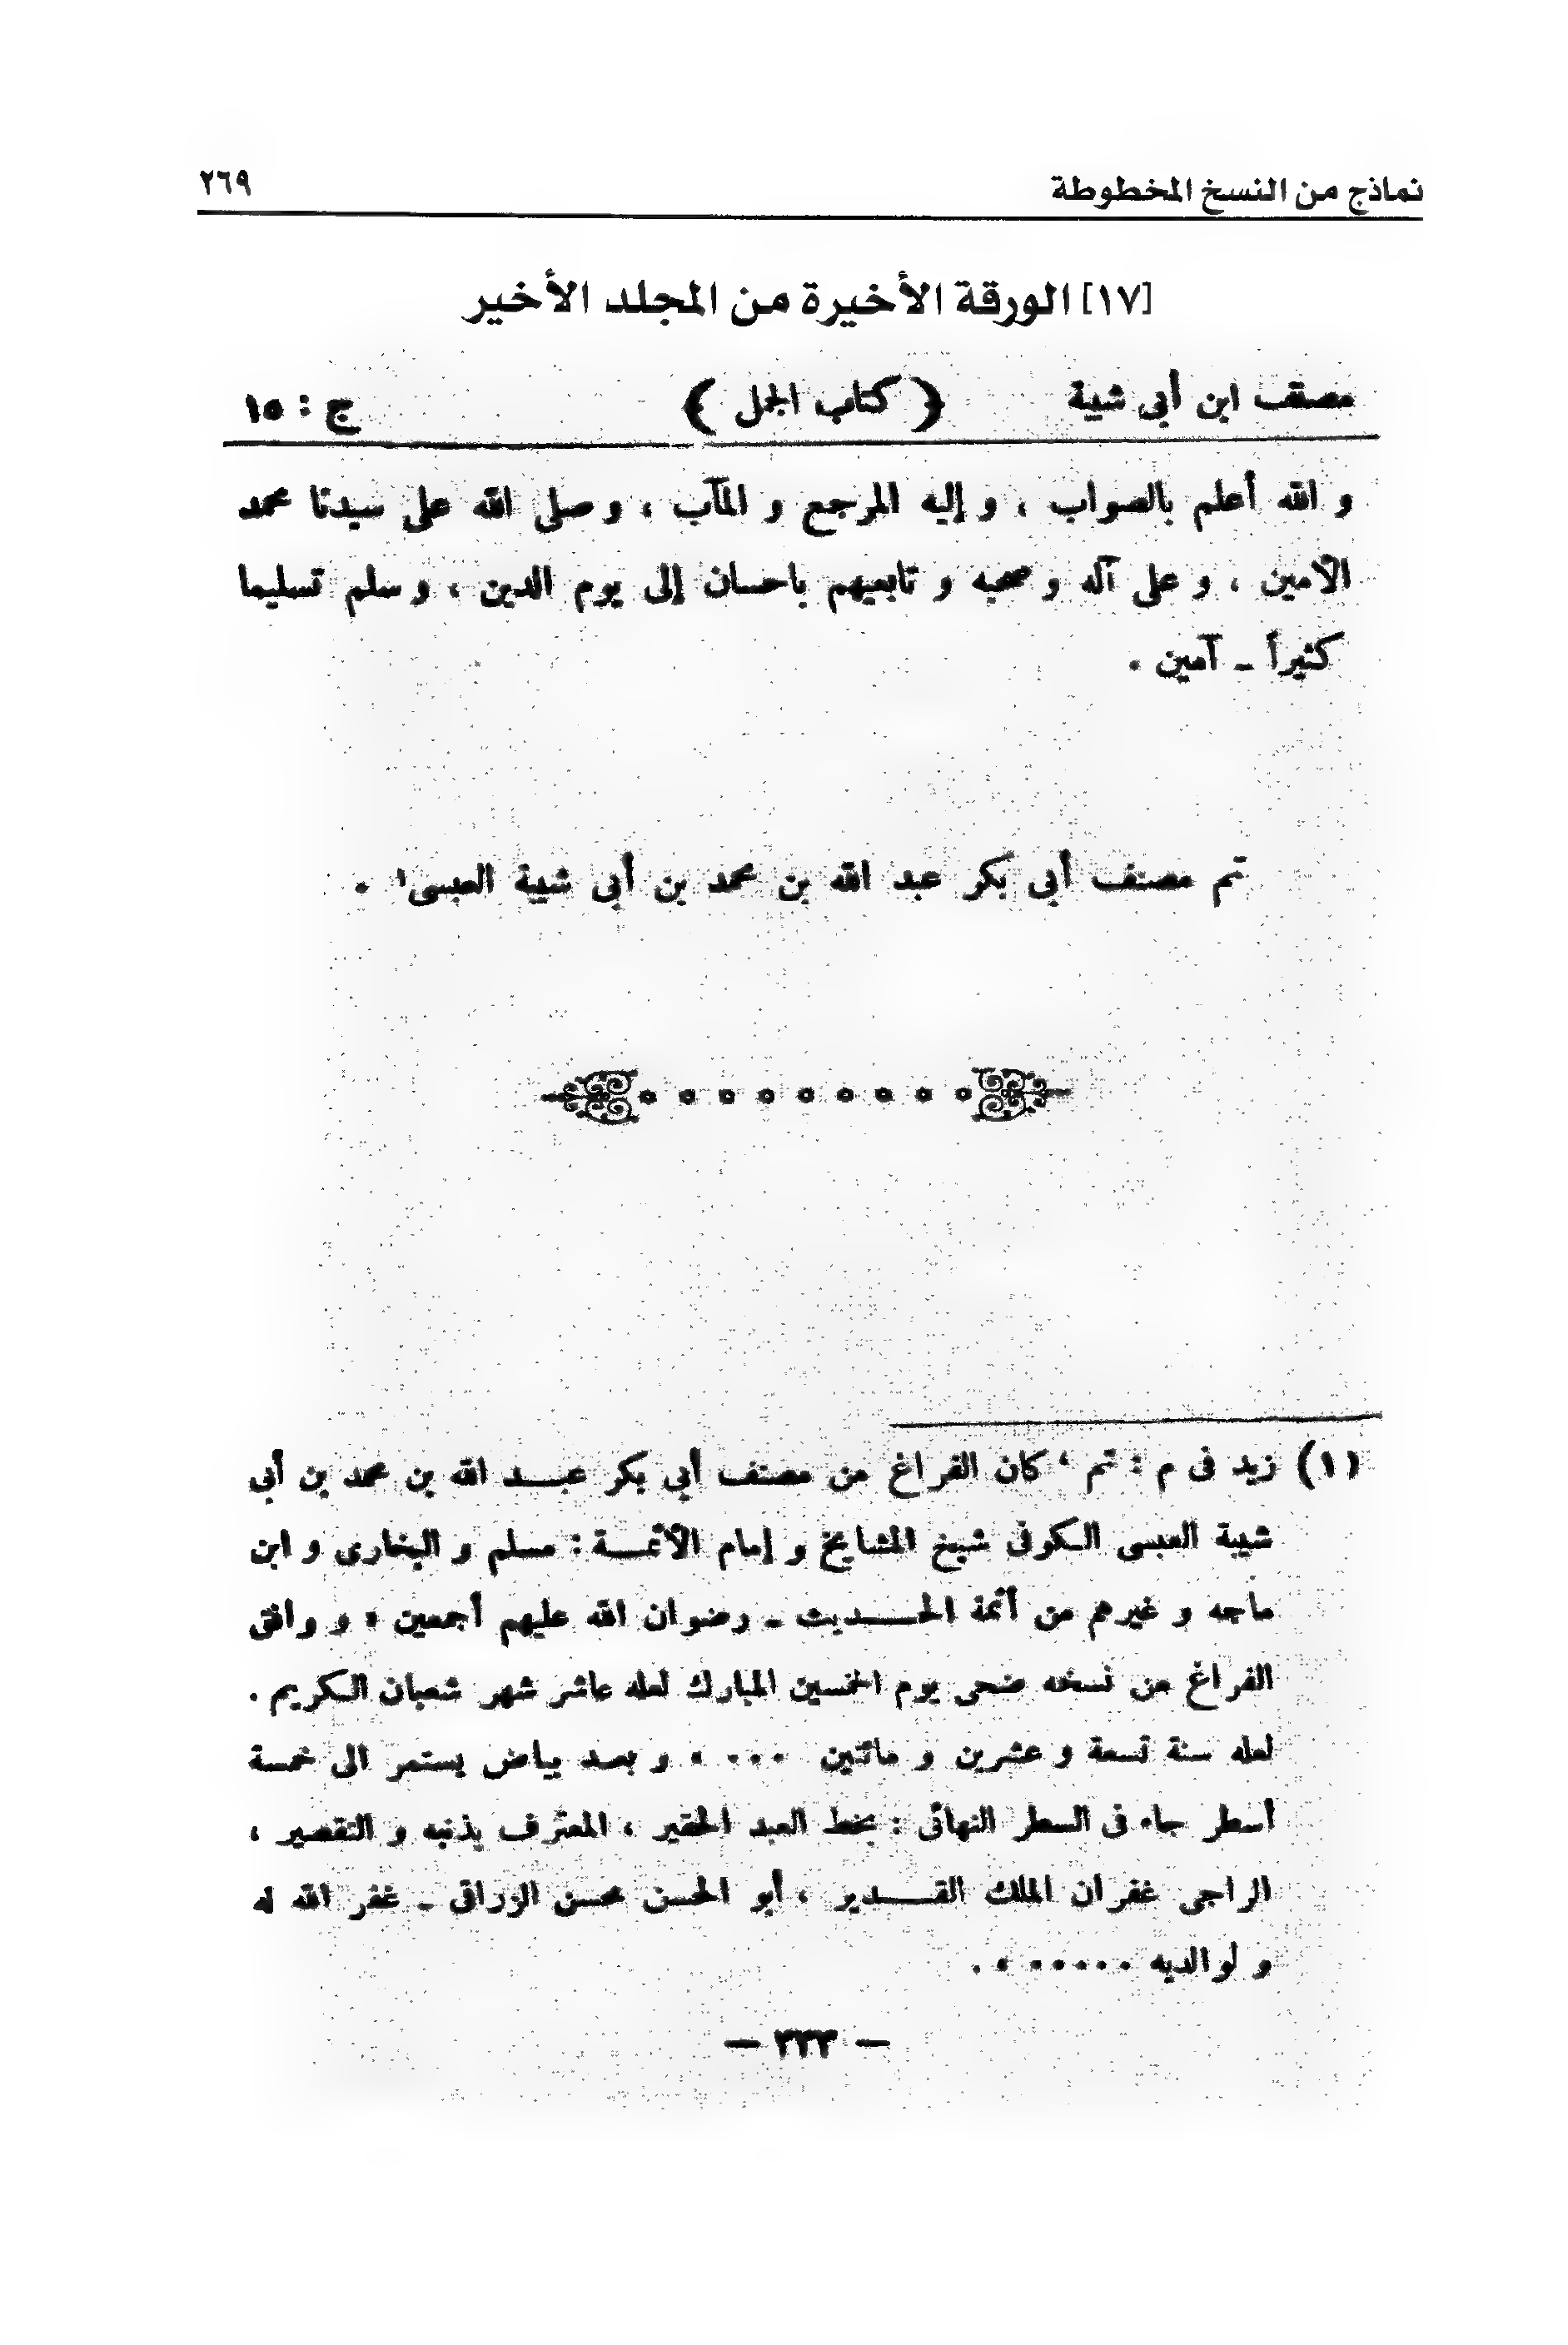 نماذج من النسخ المخطوطة ٢٦٩
[١٧] الورقة الأخيرة من المجلد الأخير
مصنف ابن أبى شيبة ( كتاب الجمل ) ج : ١٥
و الله أعلم بالصواب ، و إليه المرجع و المآب ، و صلى الله على سيدنا محمد
الأمين ، و على آله و صحبه و تابعيهم باحسان إلى يوم الدين ، و سلم تسليما
كثيراً ـ آمين .
تم مصنف أبى بكر عبد الله بن محمد بن أبى شيبة العبسى١ .
(١) زيد فى م : تم ‘ كان الفراغ من مصنف أبي بكر عبـــد الله بن محمد بن أبى
شيبة العبسى الكوفى شيخ المشايخ و إمام الأئمــة : مسلم و البخارى و ابن
ماجه و غيرهم من أئمة الحـــديث ـ رضوان الله عليهم أجمعين ، و وافق
الفراغ من نسخه ضحى يوم الخميس المبارك لعله عاشر شهر شعبان الكريم .
لعله سنة تسعة و عشرين و مائتين ... ، و بعد بياض يستمر الى خمسة
أسطر جاء فى السطر النهائى : بخط العبد الحقير ، المعترف بذنبه و التقصير ،
الراجى غفران الملك القـــدير ، أبو الحسن محسن الزراقى ـ غفر الله له
و لوالديه ..... ، .
— ٣٣٣ —